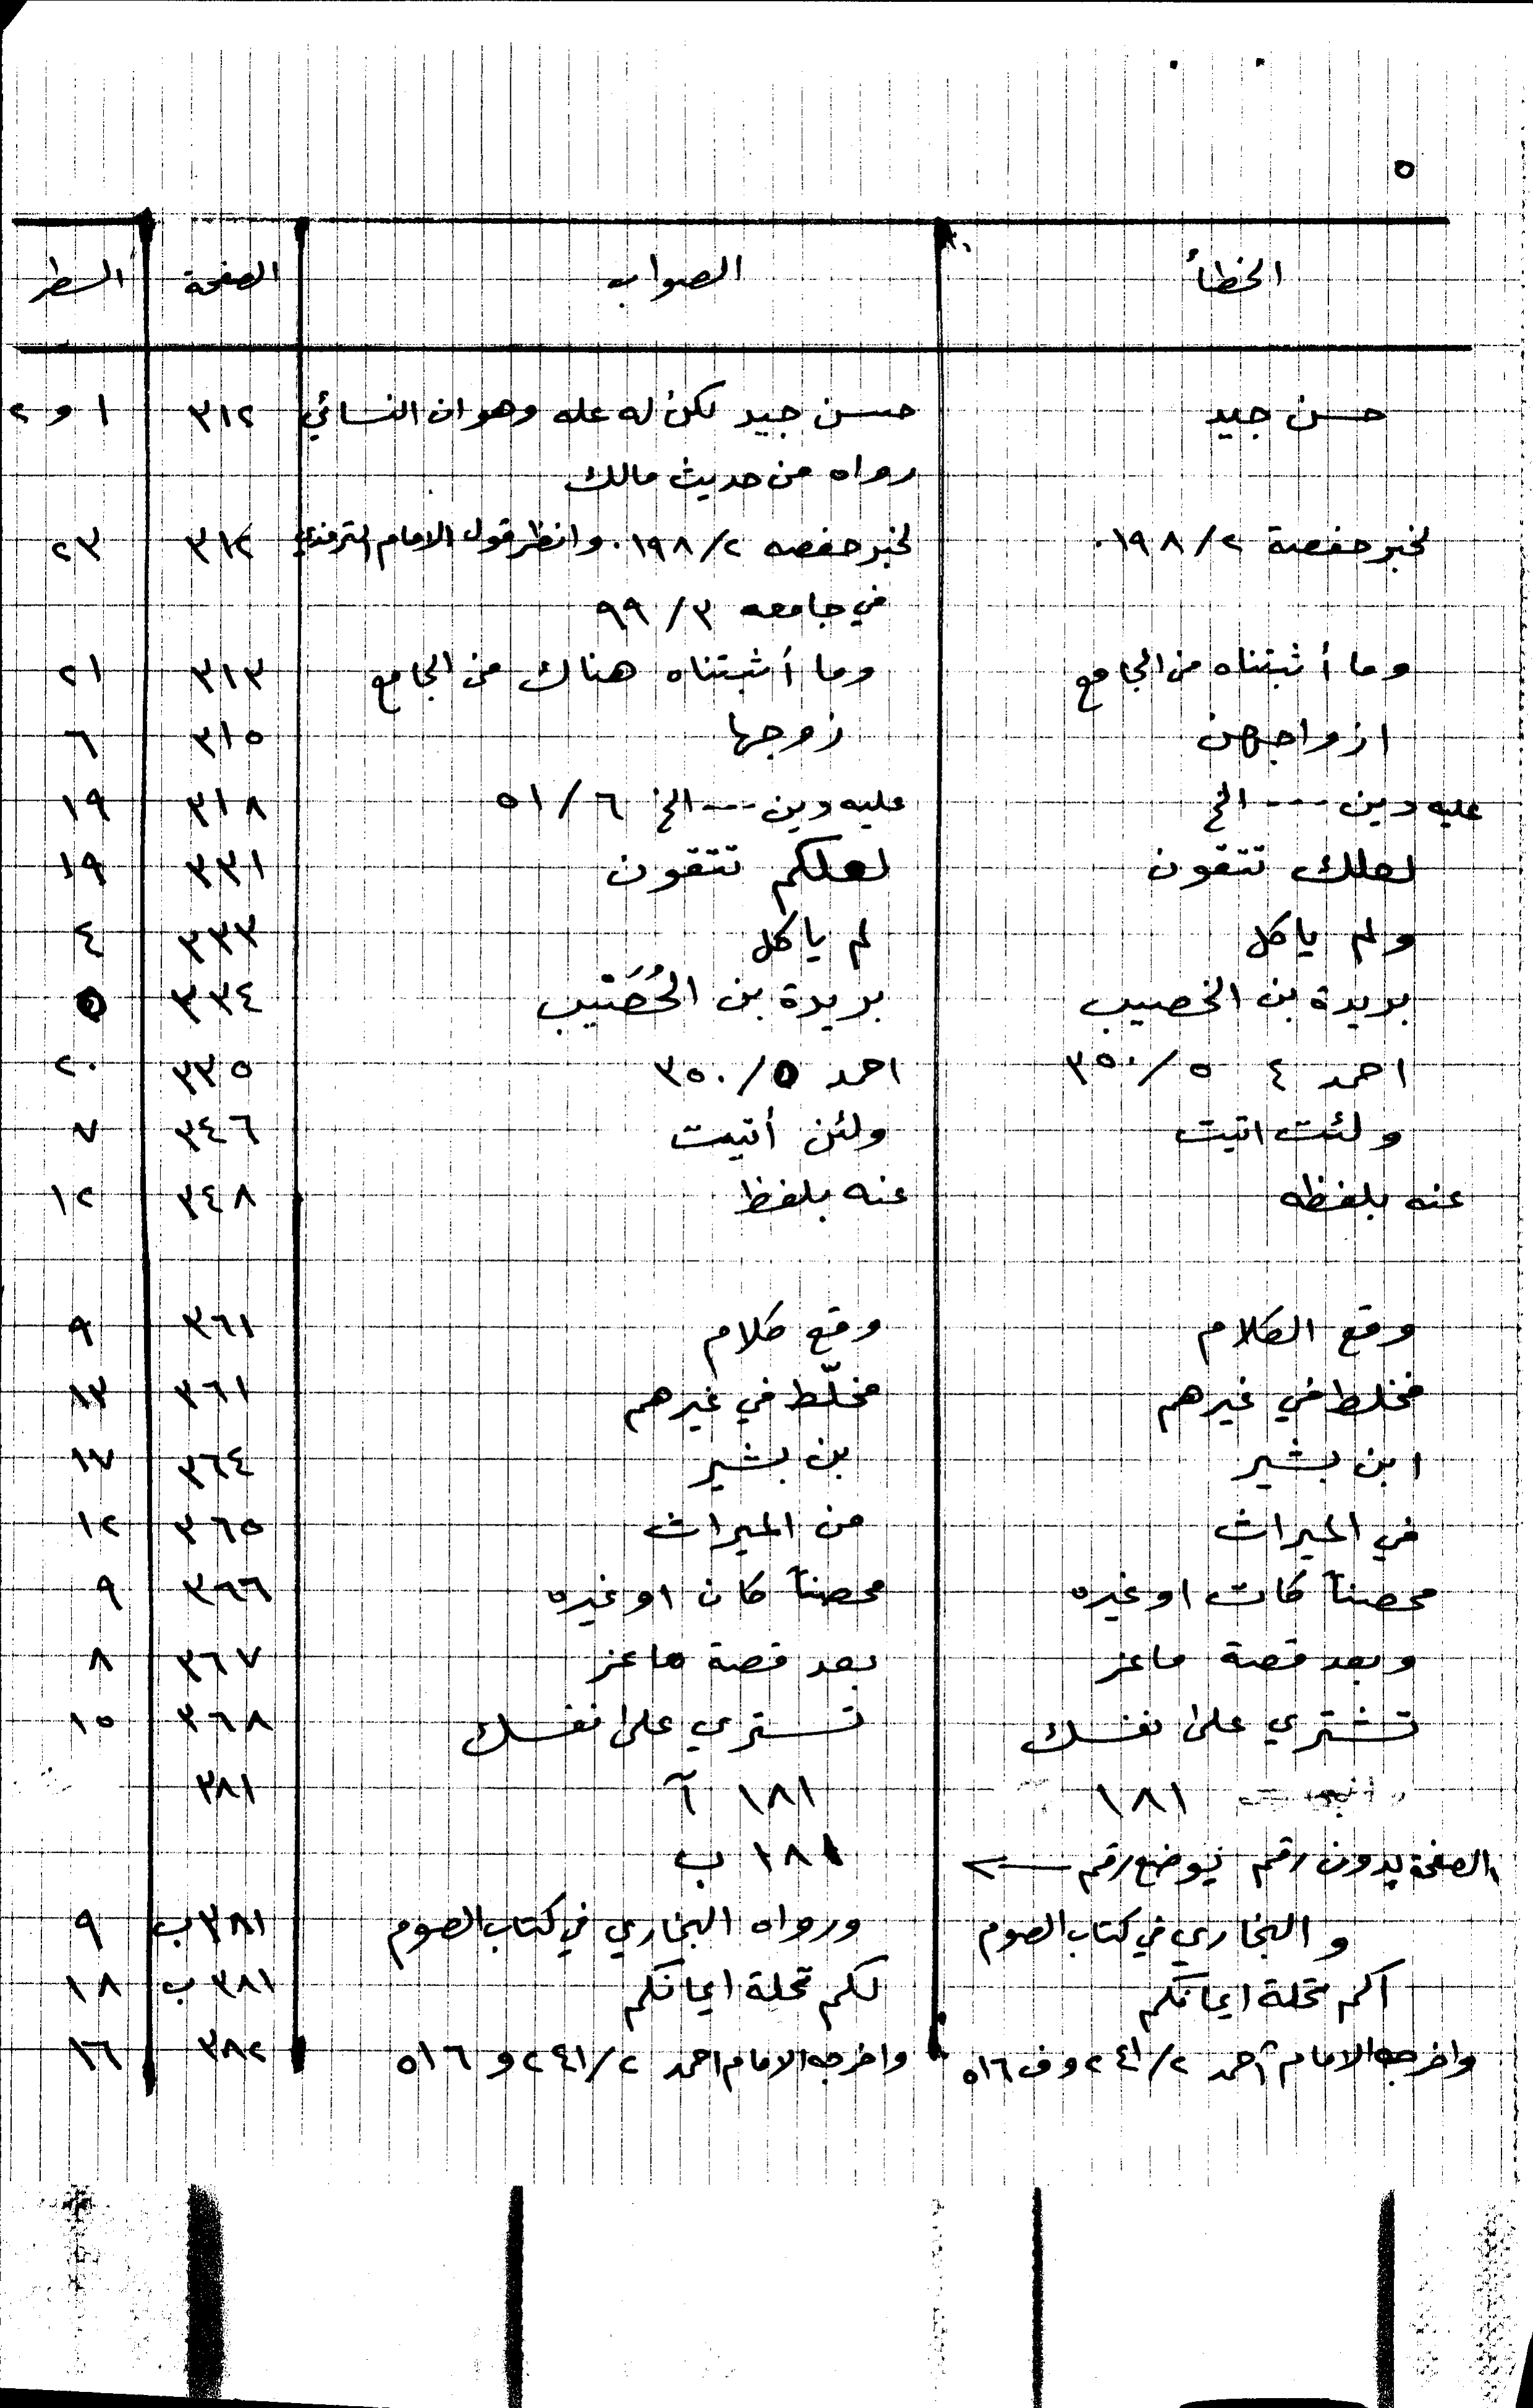 ٥
الخطأ الصواب الصفحة السطر
حسن جيد حسن جيد لكن له عله وهو ان النسائي ٣١٢ ١ و ٢
رواه من حديث مالك
لخبر حفصة ١٩٨/٢. لخبر حفصه ١٩٨/٢. وانظر قول الامام الترمذي ٣١٢ ٢٣
في جامعه ٩٩/٣
وما أثبتناه من الجامع وما أثبتناه هناك من الجامع ٣١٣ ٢١
ازواجهن زوجها ٣١٥ ٦
عليه دين --- الخ عليه دين --- الخ ٥١/٦ ٣١٨ ١٩
لعلك تتقون لعلكم تتقون ٣٣١ ١٩
ولم ياكل لم ياكل ٣٣٣ ٤
بريدة بن الخصيب بريدة بن الحُصَيْب ٣٣٤ ٥
احمد ٤ ٣٥٠/٥ احمد ٣٥٠/٥ ٣٣٥ ٢٠
ولئت اتيت ولئن أتيت ٣٤٦ ٧
عنه بلفظه عنه بلفظ ٣٤٨ ١٢
وقع الكلام وقع كلام ٣٦١ ٩
فخلط في غيرهم مخلّط في غيرهم ٣٦١ ١٣
ابن بشير بن بشير ٣٦٤ ١٧
في الميراث من الميراث ٣٦٥ ١٢
محصناً كات او غيره محصناً كان او غيره ٣٦٦ ٩
وبعد قصة ماعز بعد قصة ماعز ٣٦٧ ٨
تشتري على نفسك تستري على نفسك ٣٦٨ ١٥
١٨١ ١٨١ آ ٣٨١
الصفحة بدون رقم يوضع رقم ← ١٨١ ب
والبخاري في كتاب الصوم ورواه البخاري في كتاب الصوم ٣٨١ ب ٩
اكم تحلة ايمانكم لكم تحلة ايمانكم ٣٨١ ب ١٨
واخرجه الامام احمد ٢٤١/٢ وف ٥١٦ واخرجه الامام احمد ٢٤١/٢ و ٥١٦ ٣٨٢ ١٦